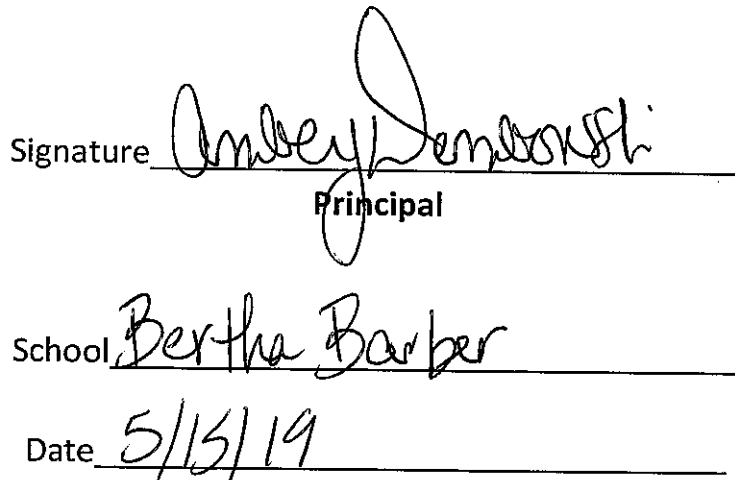 Signature Amber Dembowski
Principal
School Bertha Barber
Date 5/15/19